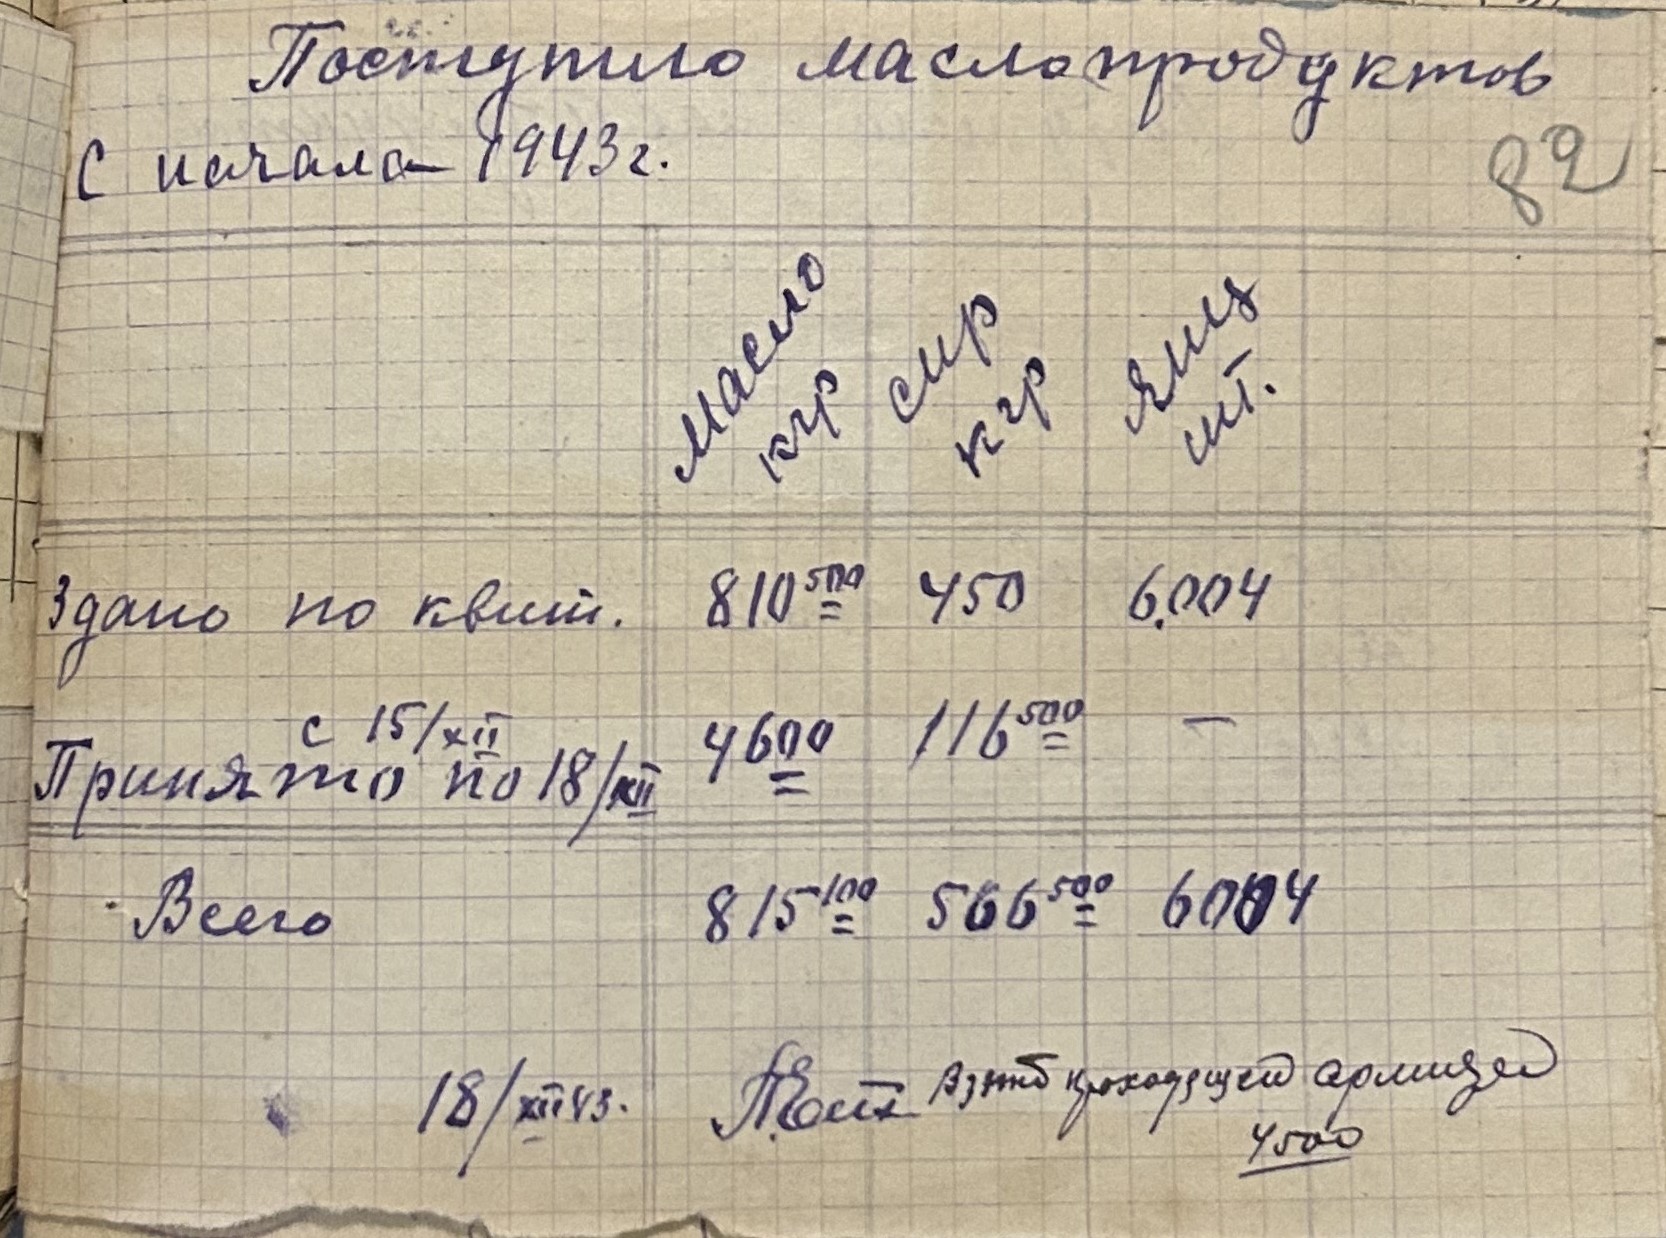 Поступило маслопродуктов
с начала 1943г.
82
Масло кгр сыр кгр яиц шт.
Здано по квит. 810 500 450 6.004
с 15/XII
Принято по 18/XII 4600 116 500 —
Всего 815 100 566 500 6004
18/XII 43. Взято проходящей армией
4500